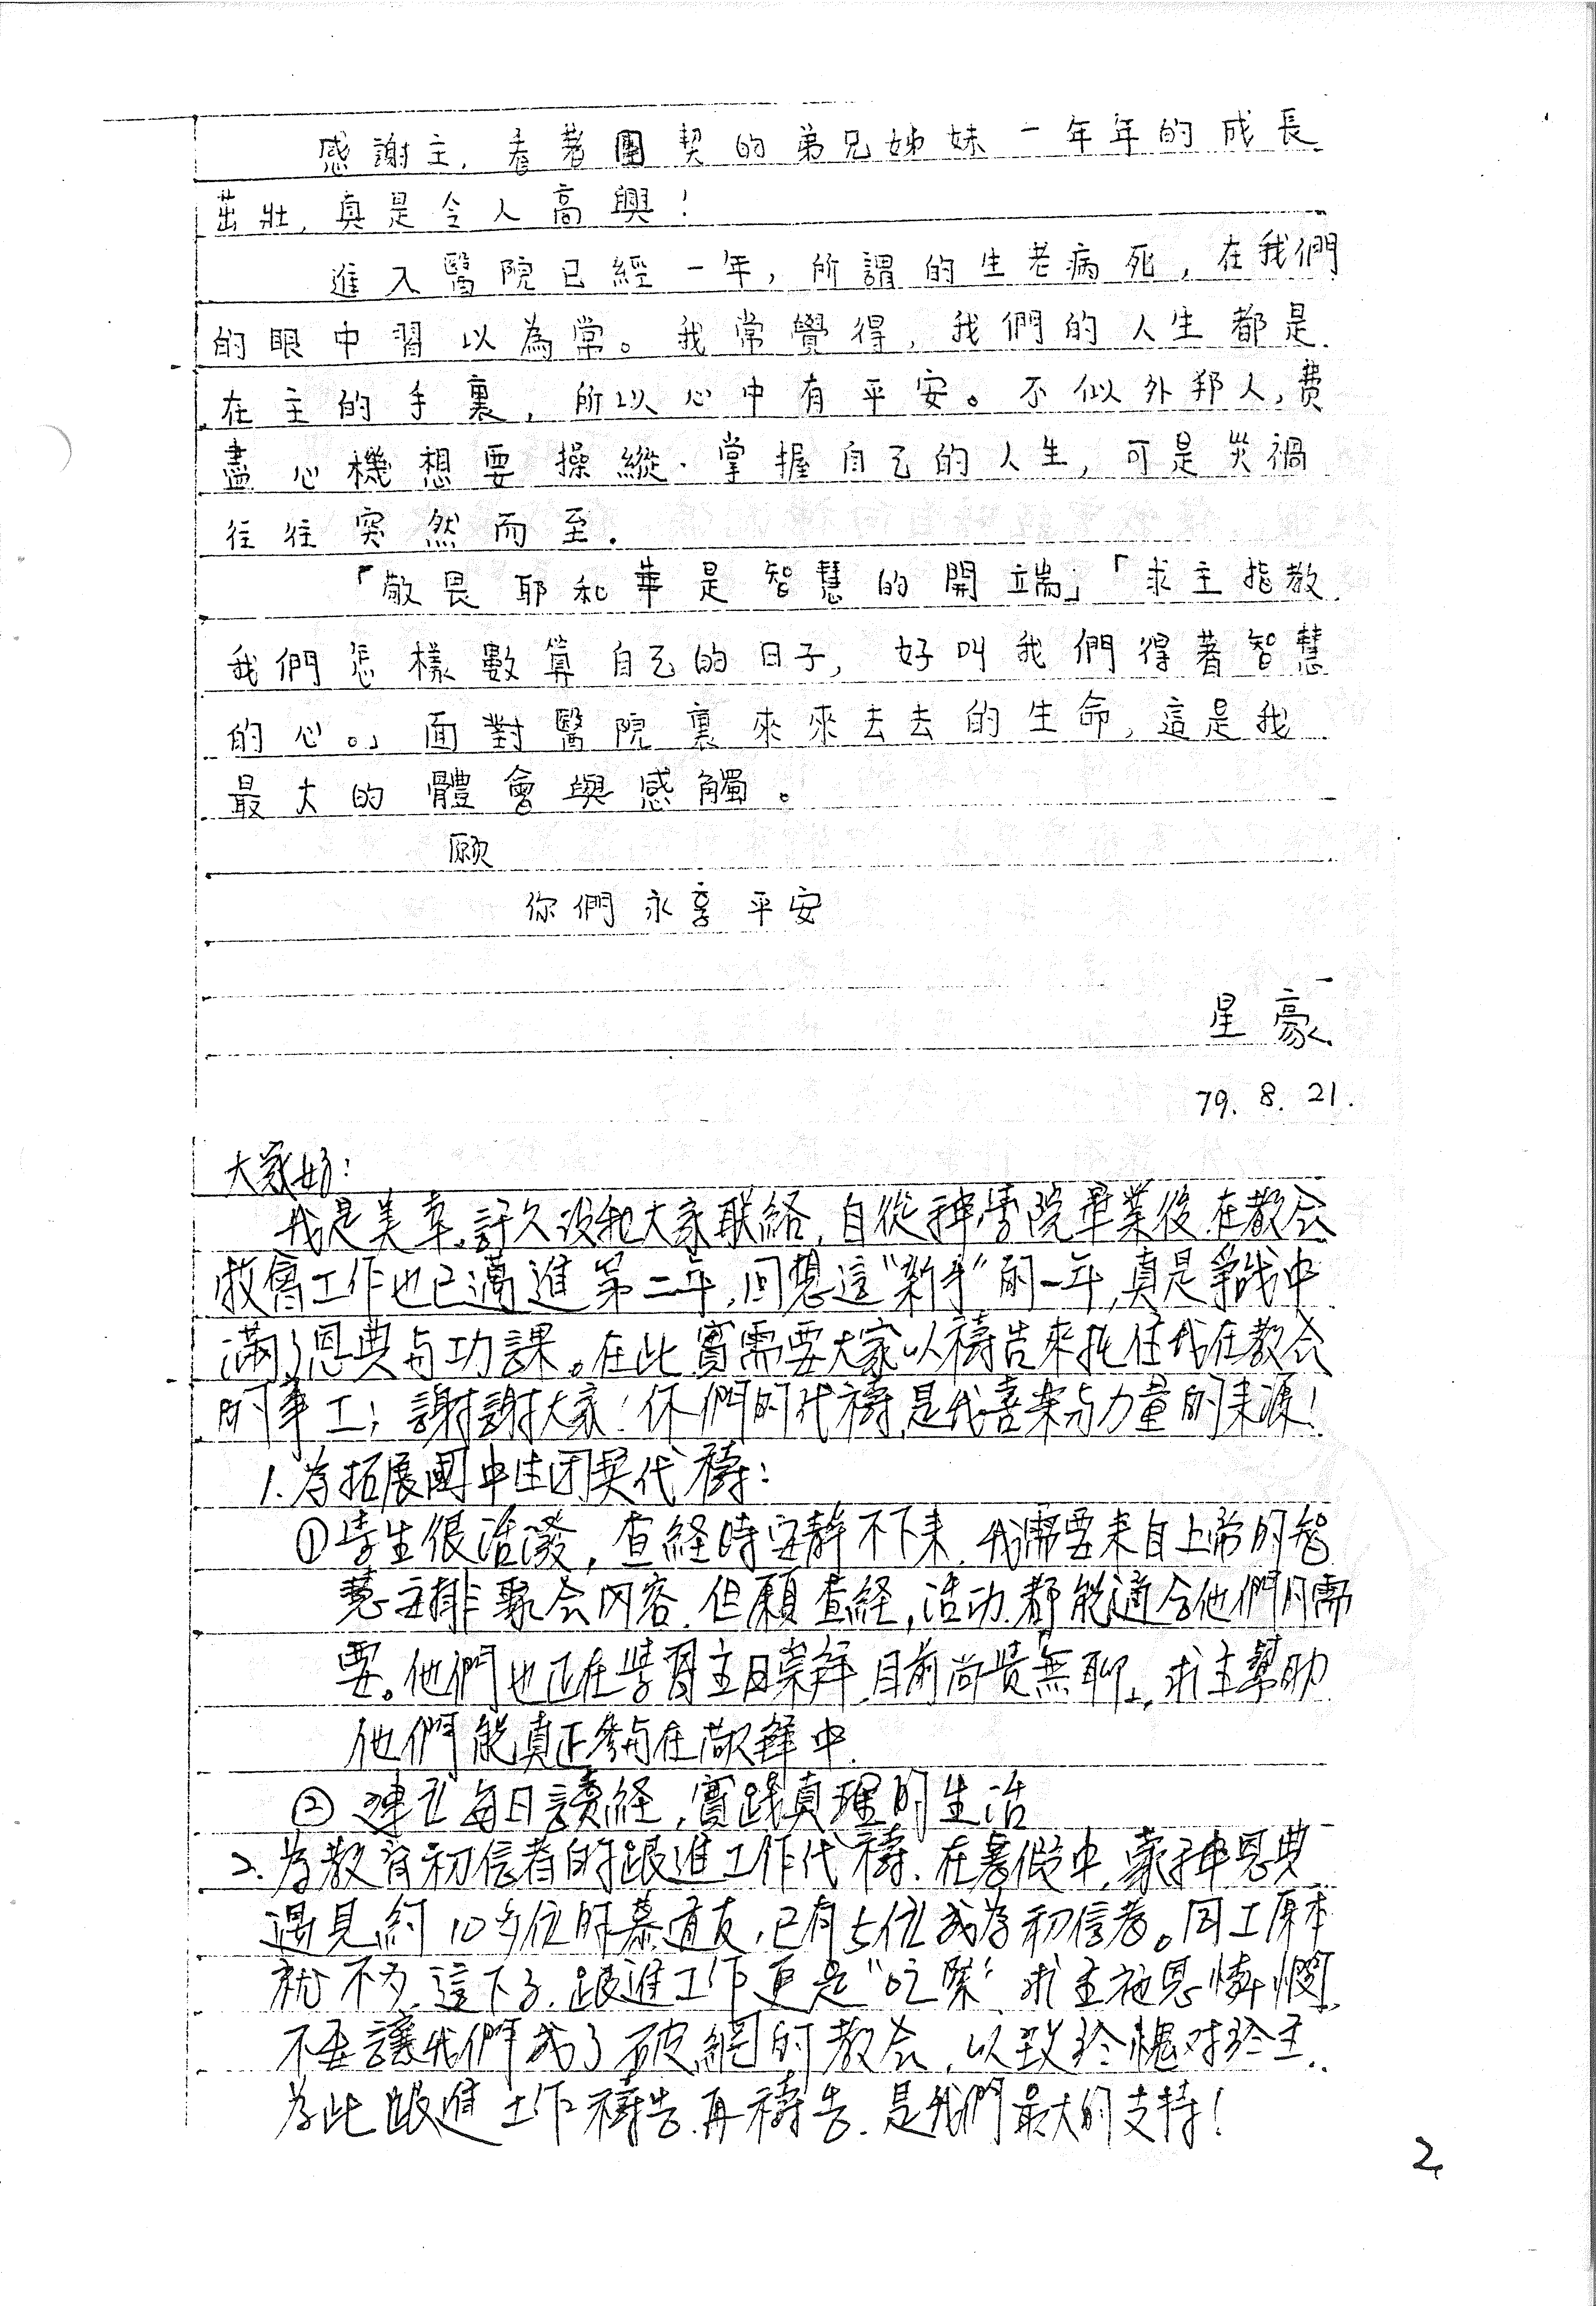 感謝主，看著團契的弟兄姊妹一年年的成長
茁壯，真是令人高興！
進入醫院已經一年，所謂的生老病死，在我們
的眼中習以為常。我常覺得，我們的人生都是
在主的手裏，所以心中有平安。不似外邦人，費
盡心機想要操縱．掌握自己的人生，可是災禍
往往突然而至．
「敬畏耶和華是智慧的開端」「求主指教
我們怎樣數算自己的日子，好叫我們得著智慧
的心。」面對醫院裏來來去去的生命，這是我
最大的體會與感觸。
願
你們永享平安
星豪
79. 8. 21.
大家好：
我是美幸，許久沒和大家联絡，自從神學院畢業後在教会
牧會工作也已邁進第二年，回想這"新手"的一年，真是爭战中
滿了恩典与功課。在此實需要大家以禱告來托住我在教会
的事工；謝謝大家！你們的代禱是我喜楽与力量的来源！
1. 為拓展國中生团契代禱：
①学生很活潑，查経時安静不下来，我需要来自上帝的智
慧安排聚会内容，但願查経，活动都能適合他們的需
要。他們也正在学習主日崇拜，目前尚覚無聊，求主幫助
他們能真正参与在敬拜中．
②建立每日讀経，實践真理的生活
2. 為教育初信者的跟進工作代禱．在暑假中，蒙神恩典
遇見約10多位的慕道友，已有5位成為初信者。同工原本
就不多，這下子，跟進工作更是"吃緊"，求主施恩憐憫，
不要讓我們成了破網的教会，以致於愧对於主．
為此跟進工作禱告再禱告．是我們最大的支持！
2